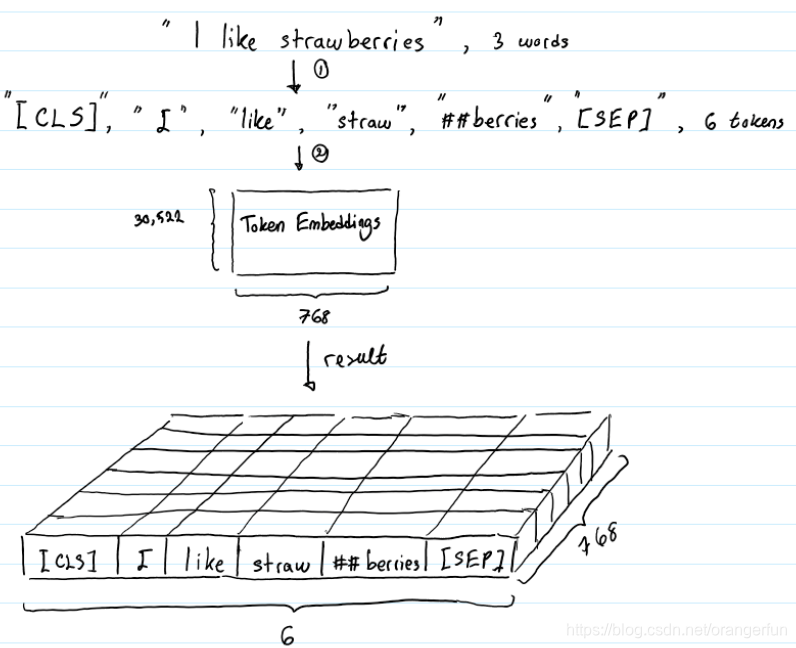 " I like strawberries", 3 words
①
"[CLS]", "I", "like", "straw", "##berries", "[SEP]", 6 tokens
②
30,522
Token Embeddings
768
result
768
[CLS] I like straw ##berries [SEP]
6
https://blog.csdn.net/orangerfun